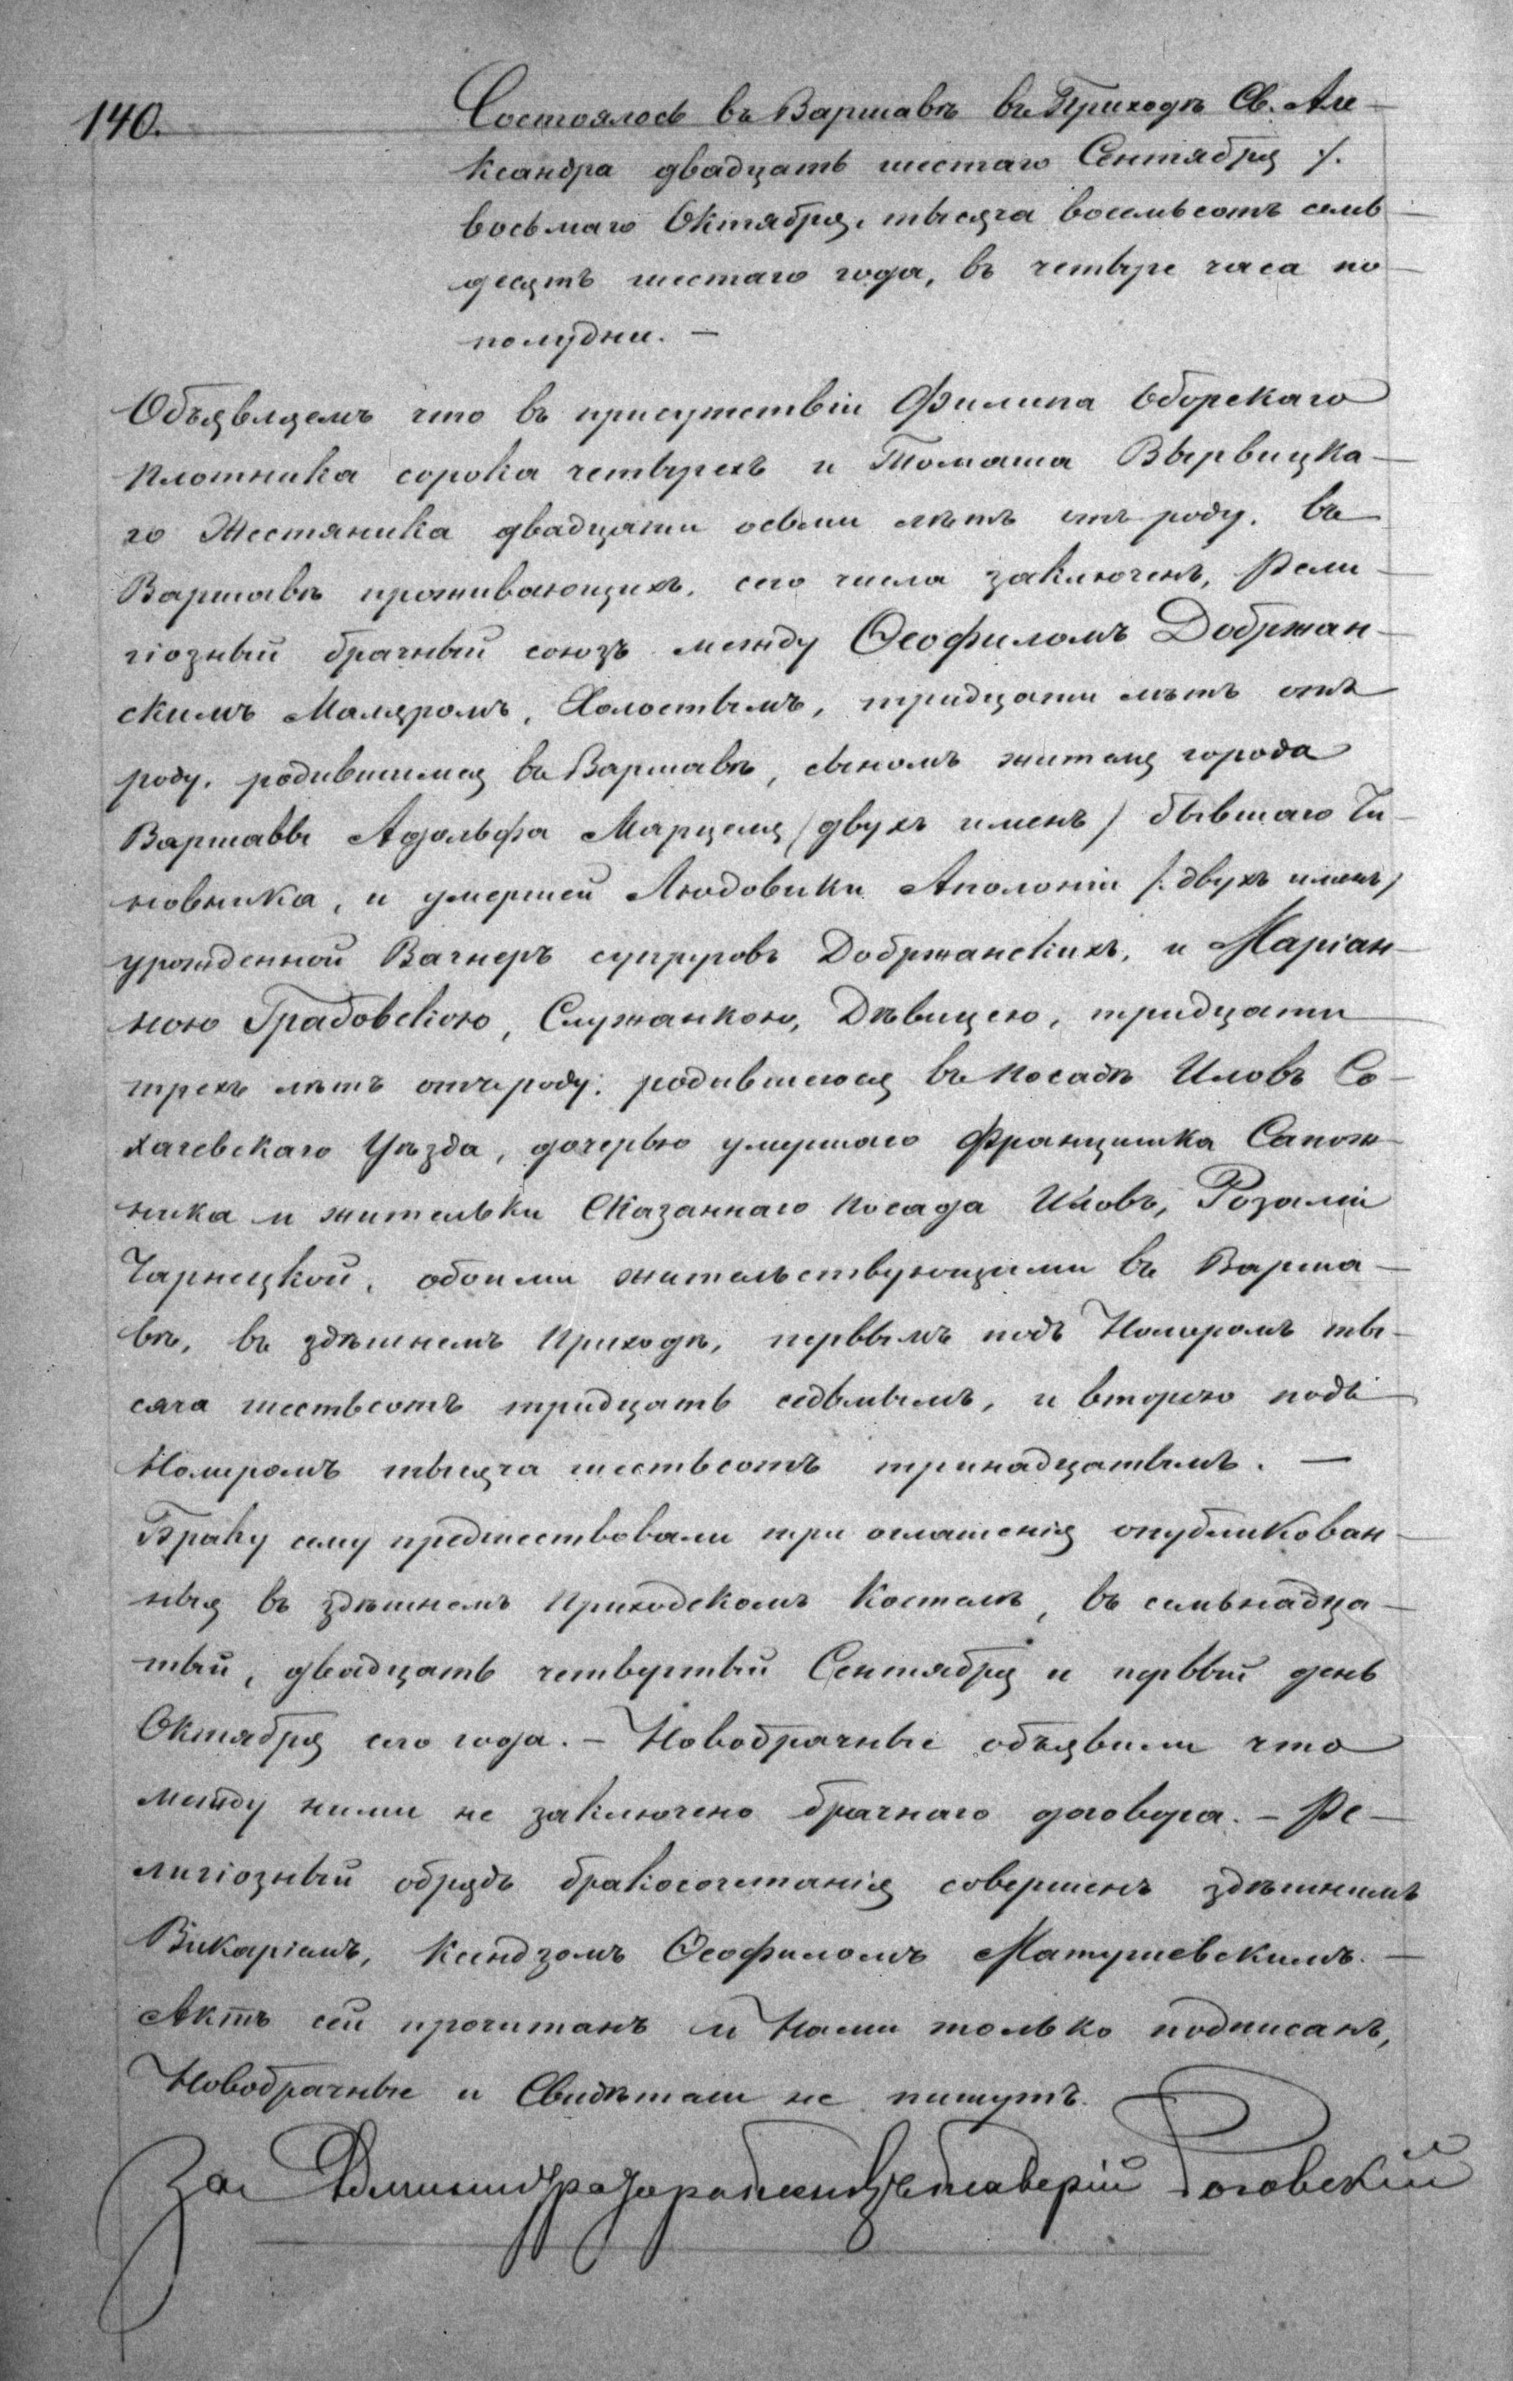 140. Состоялось въ Варшавѣ въ Приходѣ Св. Але-
ксандра двадцать шестаго Сентября /.
восьмаго Октября, тысяча восемьсотъ семь
десятъ шестаго года, въ четыре часа по
полудни. —
Объявляемъ что въ присутствіи Филипа Оборскаго
плотника сорока четырехъ и Томаша Вырвицка-
го Жестяника двадцати осьми лѣтъ отъ роду, въ
Варшавѣ проживающихъ, сего числа заключенъ, Рели
гіозный брачный союзъ между Ѳеофиломъ Добржан-
скимъ Маляромъ, Холостымъ, тридцати лѣтъ отъ
роду, родившимся въ Варшавѣ, сыномъ жителя города
Варшавы Адольфа Марцеля /двухъ именъ/ бывшаго Чи-
новника, и умершей Людовики Аполоніи /: двухъ именъ/
урожденной Вагнеръ супруговъ Добржанскихъ, и Маріан-
ною Грабовскою, Служанкою, Дѣвицею, тридцати
трехъ лѣтъ отъ роду, родившеюся въ посадѣ Иловъ Со-
хачевскаго Уѣзда, дочерью умершаго Францишка Сапож-
ника и жительки Сказаннаго посада Иловъ, Розаліи
Чарнецкой, обоими жительствующими въ Варша-
вѣ, въ здѣшнемъ Приходѣ, первымъ подъ Номеромъ ты-
сяча шестьсотъ тридцать седьмымъ, и второю подъ
Номеромъ тысяча шестьсотъ тринадцатымъ. —
Браку сему предшествовали три оглашенія опубликован-
ныя въ здѣшнемъ Приходскомъ Костелѣ, въ семьнадца-
тый, двадцать четвертый Сентября и первый день
Октября сего года. — Новобрачные объявили что
между ними не заключено брачнаго договора. — Ре-
лигіозный обрядъ бракосочетанія совершенъ здѣшнимъ
Викаріемъ, Ксендзомъ Ѳеофиломъ Матушевскимъ. —
Актъ сей прочитанъ и Нами только подписанъ,
Новобрачные и Свидѣтели не пишутъ.
За Администратора Роговскій